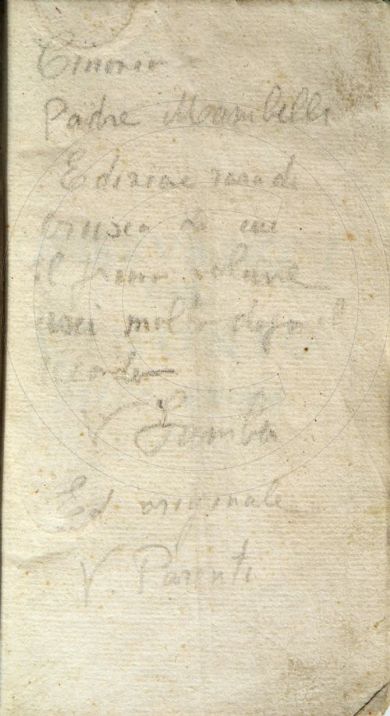 Cinonio
Padre Mambelli
Edizione rara di
Crusca di cui
il primo volume
uscì molto dopo il
secondo
V. Gamba
Ed. originale
V. Parenti